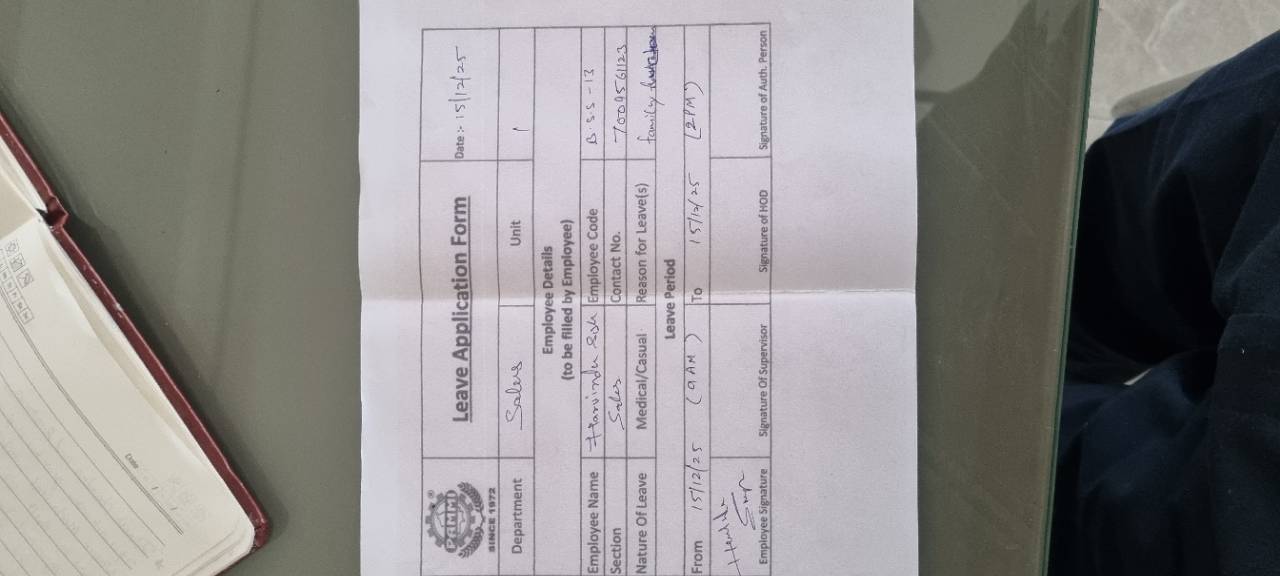 PAMMI
®
SINCE 1972
Leave Application Form
Date:- 15/12/25
Department Sales Unit 1
Employee Details
(to be filled by Employee)
Employee Name Harvinder Employee Code B.S.S-13
Section Sales Contact No. 7009561123
Nature Of Leave Medical/Casual Reason for Leave(s) family
Leave Period
From 15/12/25 (9AM) To 15/12/25 (2PM)
Employee Signature Signature Of Supervisor Signature of HOD Signature of Auth. Person
Date